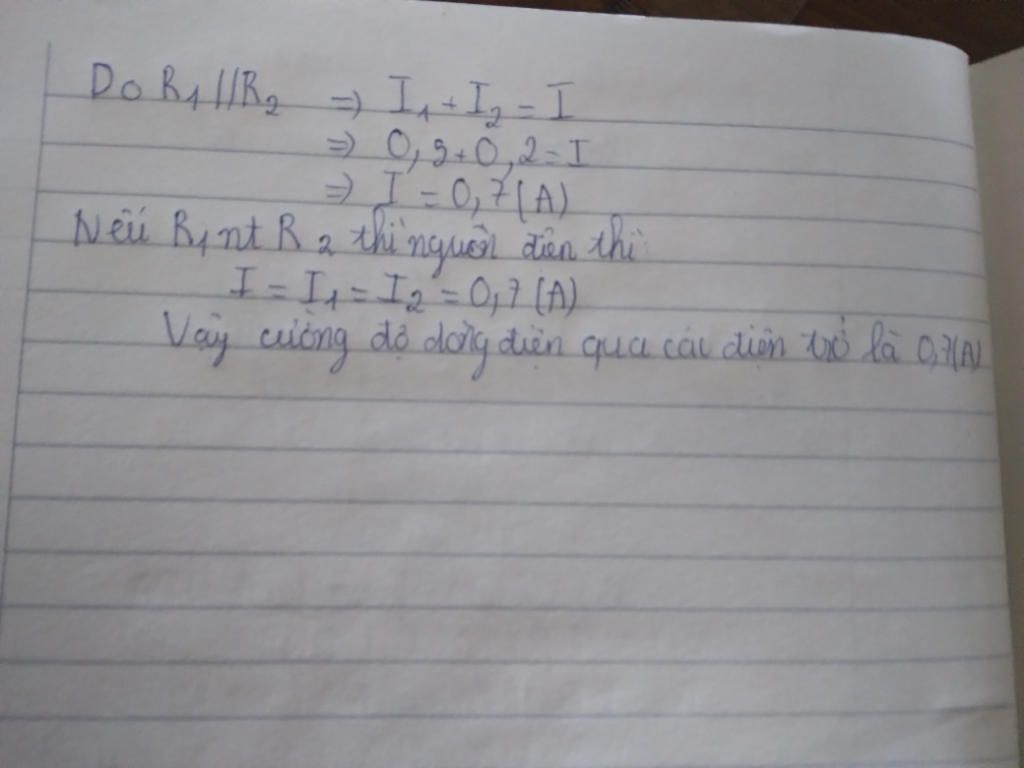 Do R1//R2 => I1 + I2 = I
=> 0,5+0,2=I
=> I = 0,7(A)
Nếu R1 nt R2 thì nguồn điện thì
I = I1 = I2 = 0,7(A)
Vậy cường độ dòng điện qua các điện trở là 0,7(A)